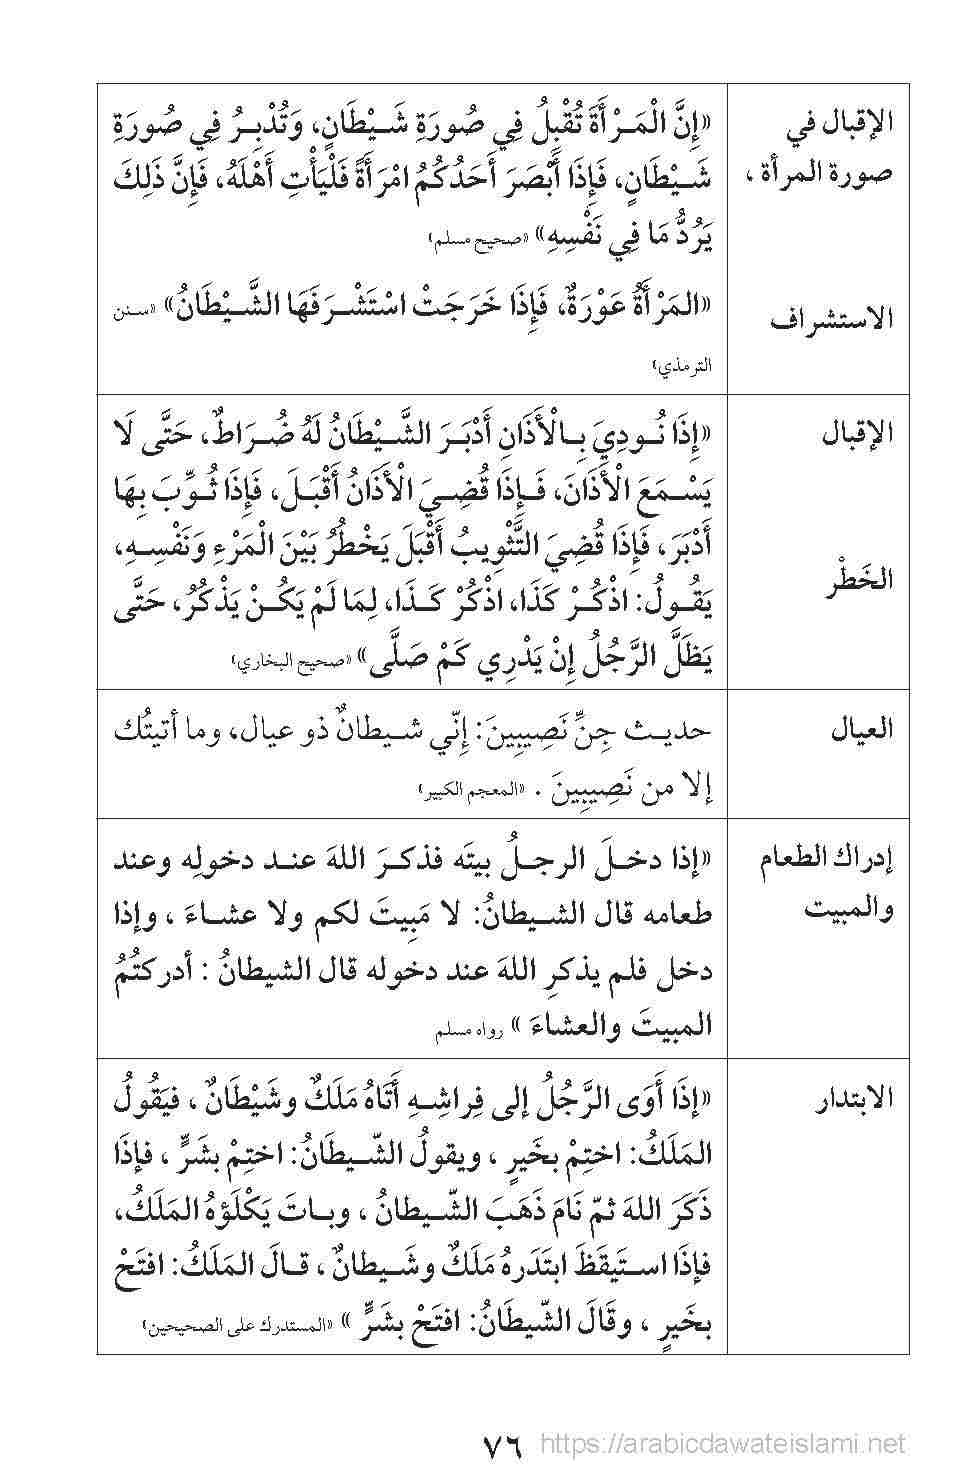 الإقبال في
صورة المرأة ،
الاستشراف
«إِنَّ الْمَـرْأَةَ تُقْبِلُ فِي صُورَةِ شَـيْطَانٍ، وَتُدْبِـرُ فِي صُورَةِ
شَـيْطَانٍ، فَإِذَا أَبْصَرَ أَحَدُكُمُ امْرَأَةً فَلْيَأْتِ أَهْلَهُ، فَإِنَّ ذَلِكَ
يَرُدُّ مَا فِي نَفْسِهِ» «صحيح مسلم»
«المَرْأَةُ عَوْرَةٌ، فَإِذَا خَرَجَتْ اسْتَشْـرَفَهَا الشَّـيْطَانُ» «سنن
الترمذي»
الإقبال
الخَطْر
«إِذَا نُـودِيَ بِـالْأَذَانِ أَدْبَـرَ الشَّـيْطَانُ لَهُ ضُـرَاطٌ، حَتَّى لَا
يَسْـمَعَ الْأَذَانَ، فَـإِذَا قُضِـيَ الْأَذَانُ أَقْبَـلَ، فَإِذَا ثُـوِّبَ بِهَا
أَدْبَرَ، فَإِذَا قُضِيَ التَّثْوِيبُ أَقْبَلَ يَخْطُرُ بَيْنَ الْمَرْءِ وَنَفْسِـهِ،
يَقُـولُ: اذْكُـرْ كَذَا، اذْكُرْ كَـذَا، لِمَا لَمْ يَكُـنْ يَذْكُرُ، حَتَّى
يَظَلَّ الرَّجُلُ إِنْ يَدْرِي كَمْ صَلَّى» «صحيح البخاري»
العيال
حديـث جِنِّ نَصِيبِينَ: إِنّي شـيطانٌ ذو عيال، وما أتيتُك
إلا من نَصِيبِينَ . «المعجم الكبير»
إدراك الطعام
والمبيت
«إذا دخـلَ الرجـلُ بيتَه فذكـرَ اللهَ عنـد دخولِه وعند
طعامه قال الشـيطانُ: لا مَبِيتَ لكم ولا عشـاءَ ، وإذا
دخل فلم يذكرِ اللهَ عند دخوله قال الشيطانُ : أدركتُمُ
المبيتَ والعشاءَ » رواه مسلم
الابتدار
«إذَا أَوَى الرَّجُلُ إلى فِراشِـهِ أَتَاهُ مَلَكٌ وشَيْطَانٌ ، فيَقُولُ
المَلَكُ: اختِمْ بخَيرٍ ، ويقولُ الشّـيطَانُ: اختِمْ بشَرٍّ ، فإذَا
ذَكَرَ اللهَ ثمّ نَامَ ذَهَبَ الشّـيطانُ ، وبـاتَ يَكْلَؤهُ المَلَكُ،
فإذَا اسـتَيقَظَ ابتَدَرهُ مَلَكٌ وشَـيطانٌ ، قـالَ المَلَكُ: افتَحْ
بخَيرٍ ، وقَالَ الشّيطَانُ: افتَحْ بشَرٍّ » «المستدرك على الصحيحين»
٧٦ https://arabicdawateislami.net